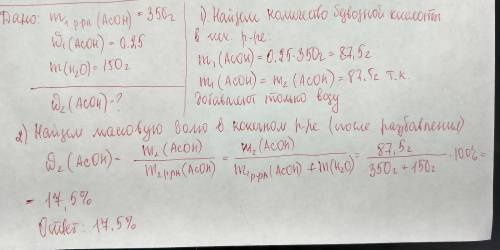 Дано: m₁ р-ра (AcOH) = 350г
ω₁(AcOH) = 0.25
m(H₂O) = 150г
ω₂(AcOH) - ?
1) Найдем количество безводной кислоты
в исх. р-ре:
m₁(AcOH) = 0.25 · 350г = 87,5г
m₁(AcOH) = m₂(AcOH) = 87.5г т.к.
добавляют только воду
2) Найдем массовую долю в конечном р-ре (после разбавления)
ω₂(AcOH) = m₂(AcOH) / m₂ р-ра (AcOH) = m₂(AcOH) / m₁ р-ра (AcOH) + m(H₂O) = 87,5г / 350г + 150г · 100% =
= 17,5%
Ответ: 17.5%